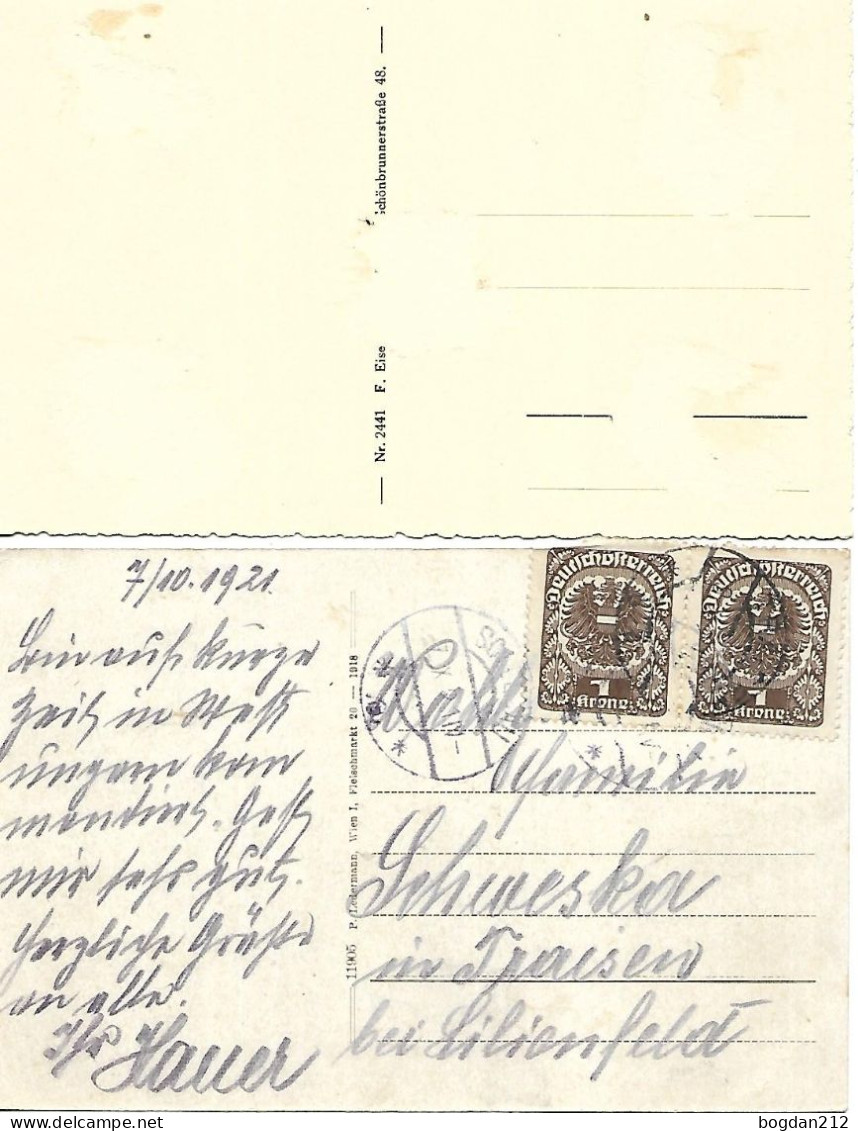 Nr. 2441 F. Eise
chönbrunnerstraße 48.
7/10. 1921.
Bin auf kurze
Zeit in West
ungarn kom
mandirt. Geht
mir sehr gut.
Herzliche Grüße
an alle.
Ihr Hauer
11905 P. Ledermann, Wien I, Fleischmarkt 20 — 1918
Deutschösterreich
1
Krone
Deutschösterreich
1
Krone
Familie
Schweska
in Traisen
bei Lilienfeld
bogdan212